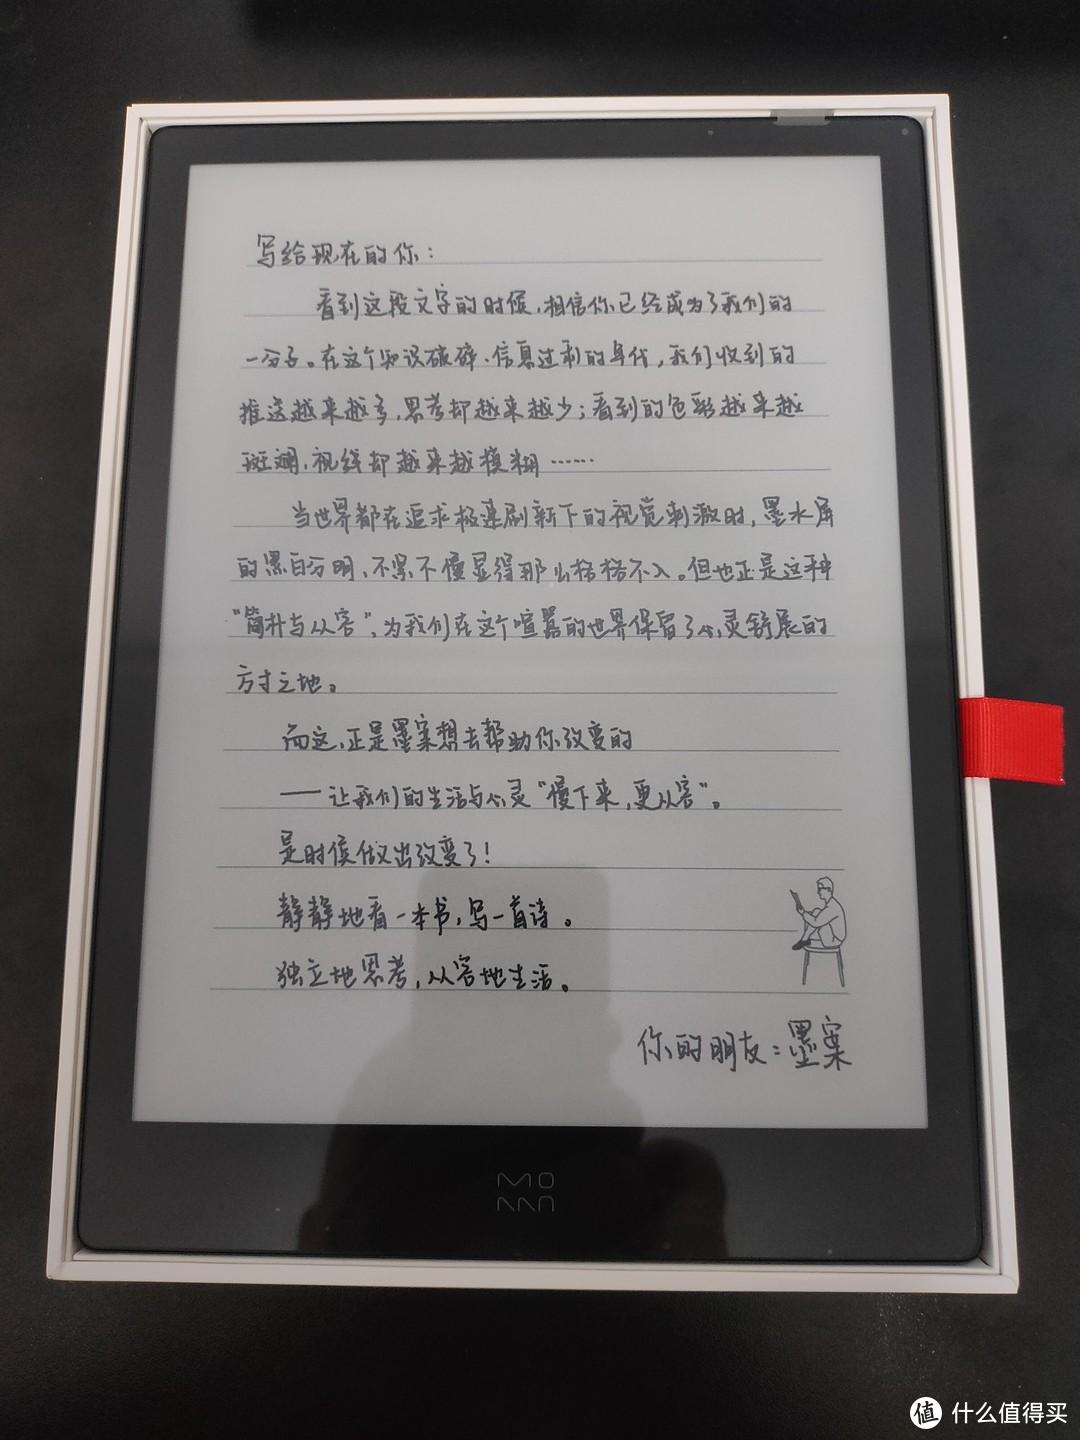 写给现在的你：
看到这段文字的时候，相信你已经成为了我们的
一分子。在这个知识破碎、信息过剩的年代，我们收到的
推送越来越多，思考却越来越少；看到的色彩越来越
斑斓，视线却越来越模糊……
当世界都在追求极速刷新下的视觉刺激时，墨水屏
的黑白分明、不紧不慢显得那么格格不入。但也正是这种
“简朴与从容”，为我们在这个喧嚣的世界保留了心灵舒展的
方寸之地。
而这，正是墨案想去帮助你改变的
——让我们的生活与心灵“慢下来，更从容”。
是时候做出改变了！
静静地看一本书，写一首诗。
独立地思考，从容地生活。
你的朋友：墨案
MO
值 什么值得买